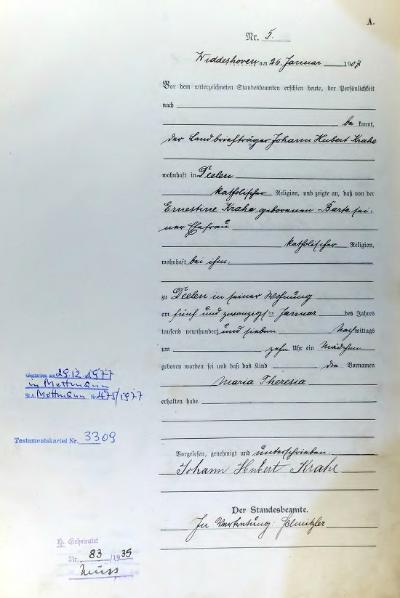 A.
Nr. 5.
Widdeshoven am 26. Januar 1907
Vor dem unterzeichneten Standesbeamten erschien heute, der Persönlichkeit
nach
be kannt,
der Landbriefträger Johann Hubert Krahe
wohnhaft in Deelen
katholischer Religion, und zeigte an, daß von der
Ernestine Krahe geborenen Barta sei-
ner Ehefrau
katholischer Religion,
wohnhaft bei ihm,
zu Deelen in seiner Wohnung
am fünf und zwanzigsten Januar des Jahres
tausend neunhundert und sieben Nachmittags
um zehn Uhr ein Mädchen
geboren worden sei und daß das Kind die Vornamen
Maria Theresia
erhalten habe
Vorgelesen, genehmigt und unterschrieben
Johann Hubert Krahe
Der Standesbeamte.
In Vertretung
gestorben am 29.12.1977
in Mettmann
StA Mettmann Nr 475/1977
Testamentskartei Nr. 3309
Geheiratet
Nr. 83 /1935
Neuss